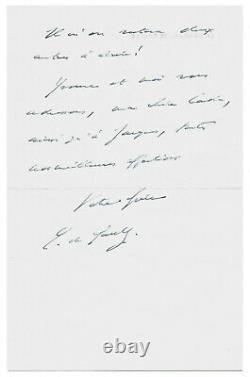 deux
autres à écrire !
Yvonne et moi vous
adressons, ma chère
ainsi qu'à Jacques, toutes
nos meilleures affections
Votre frère
C. de Gaulle
ebay